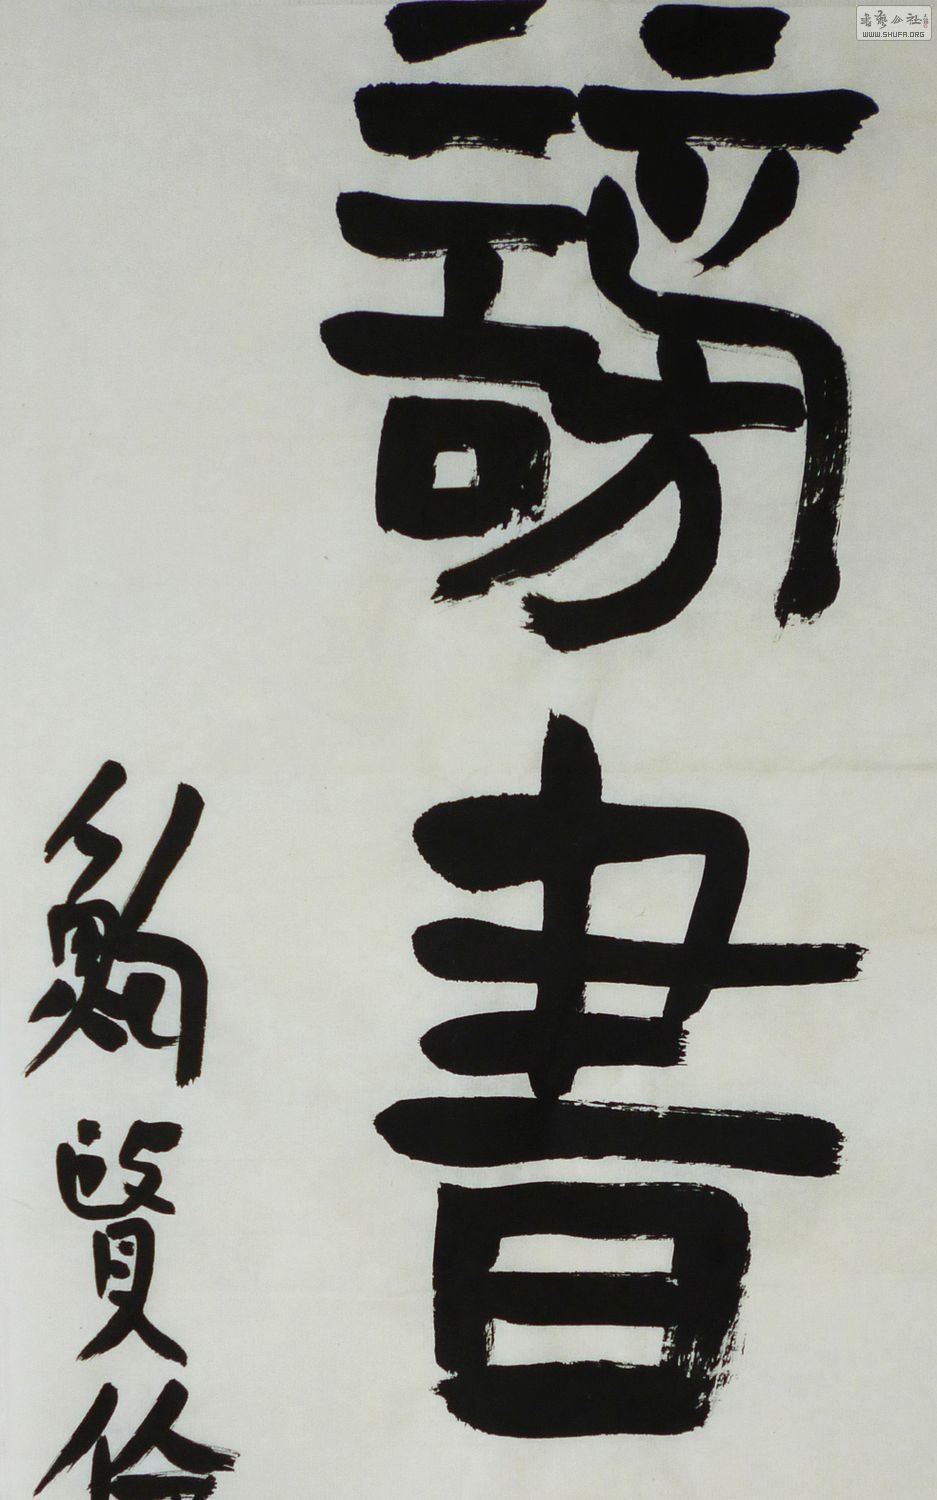 謗書
鮑賢倫
書藝公社
WWW.SHUFA.ORG